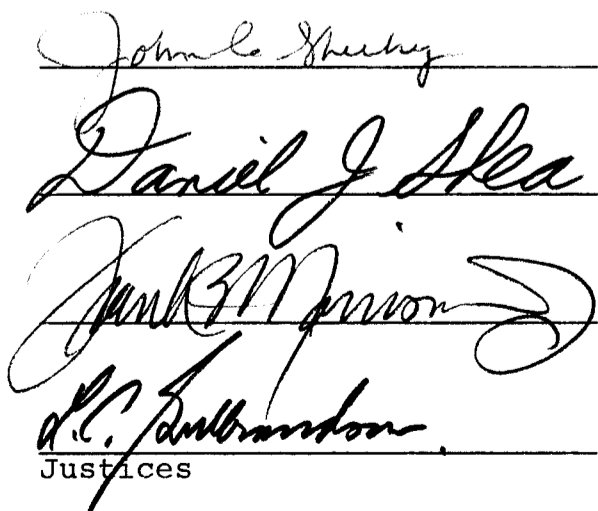 John C Sheehy
Daniel J Shea
Frank B Morrison
L.C. Gulbrandson
Justices